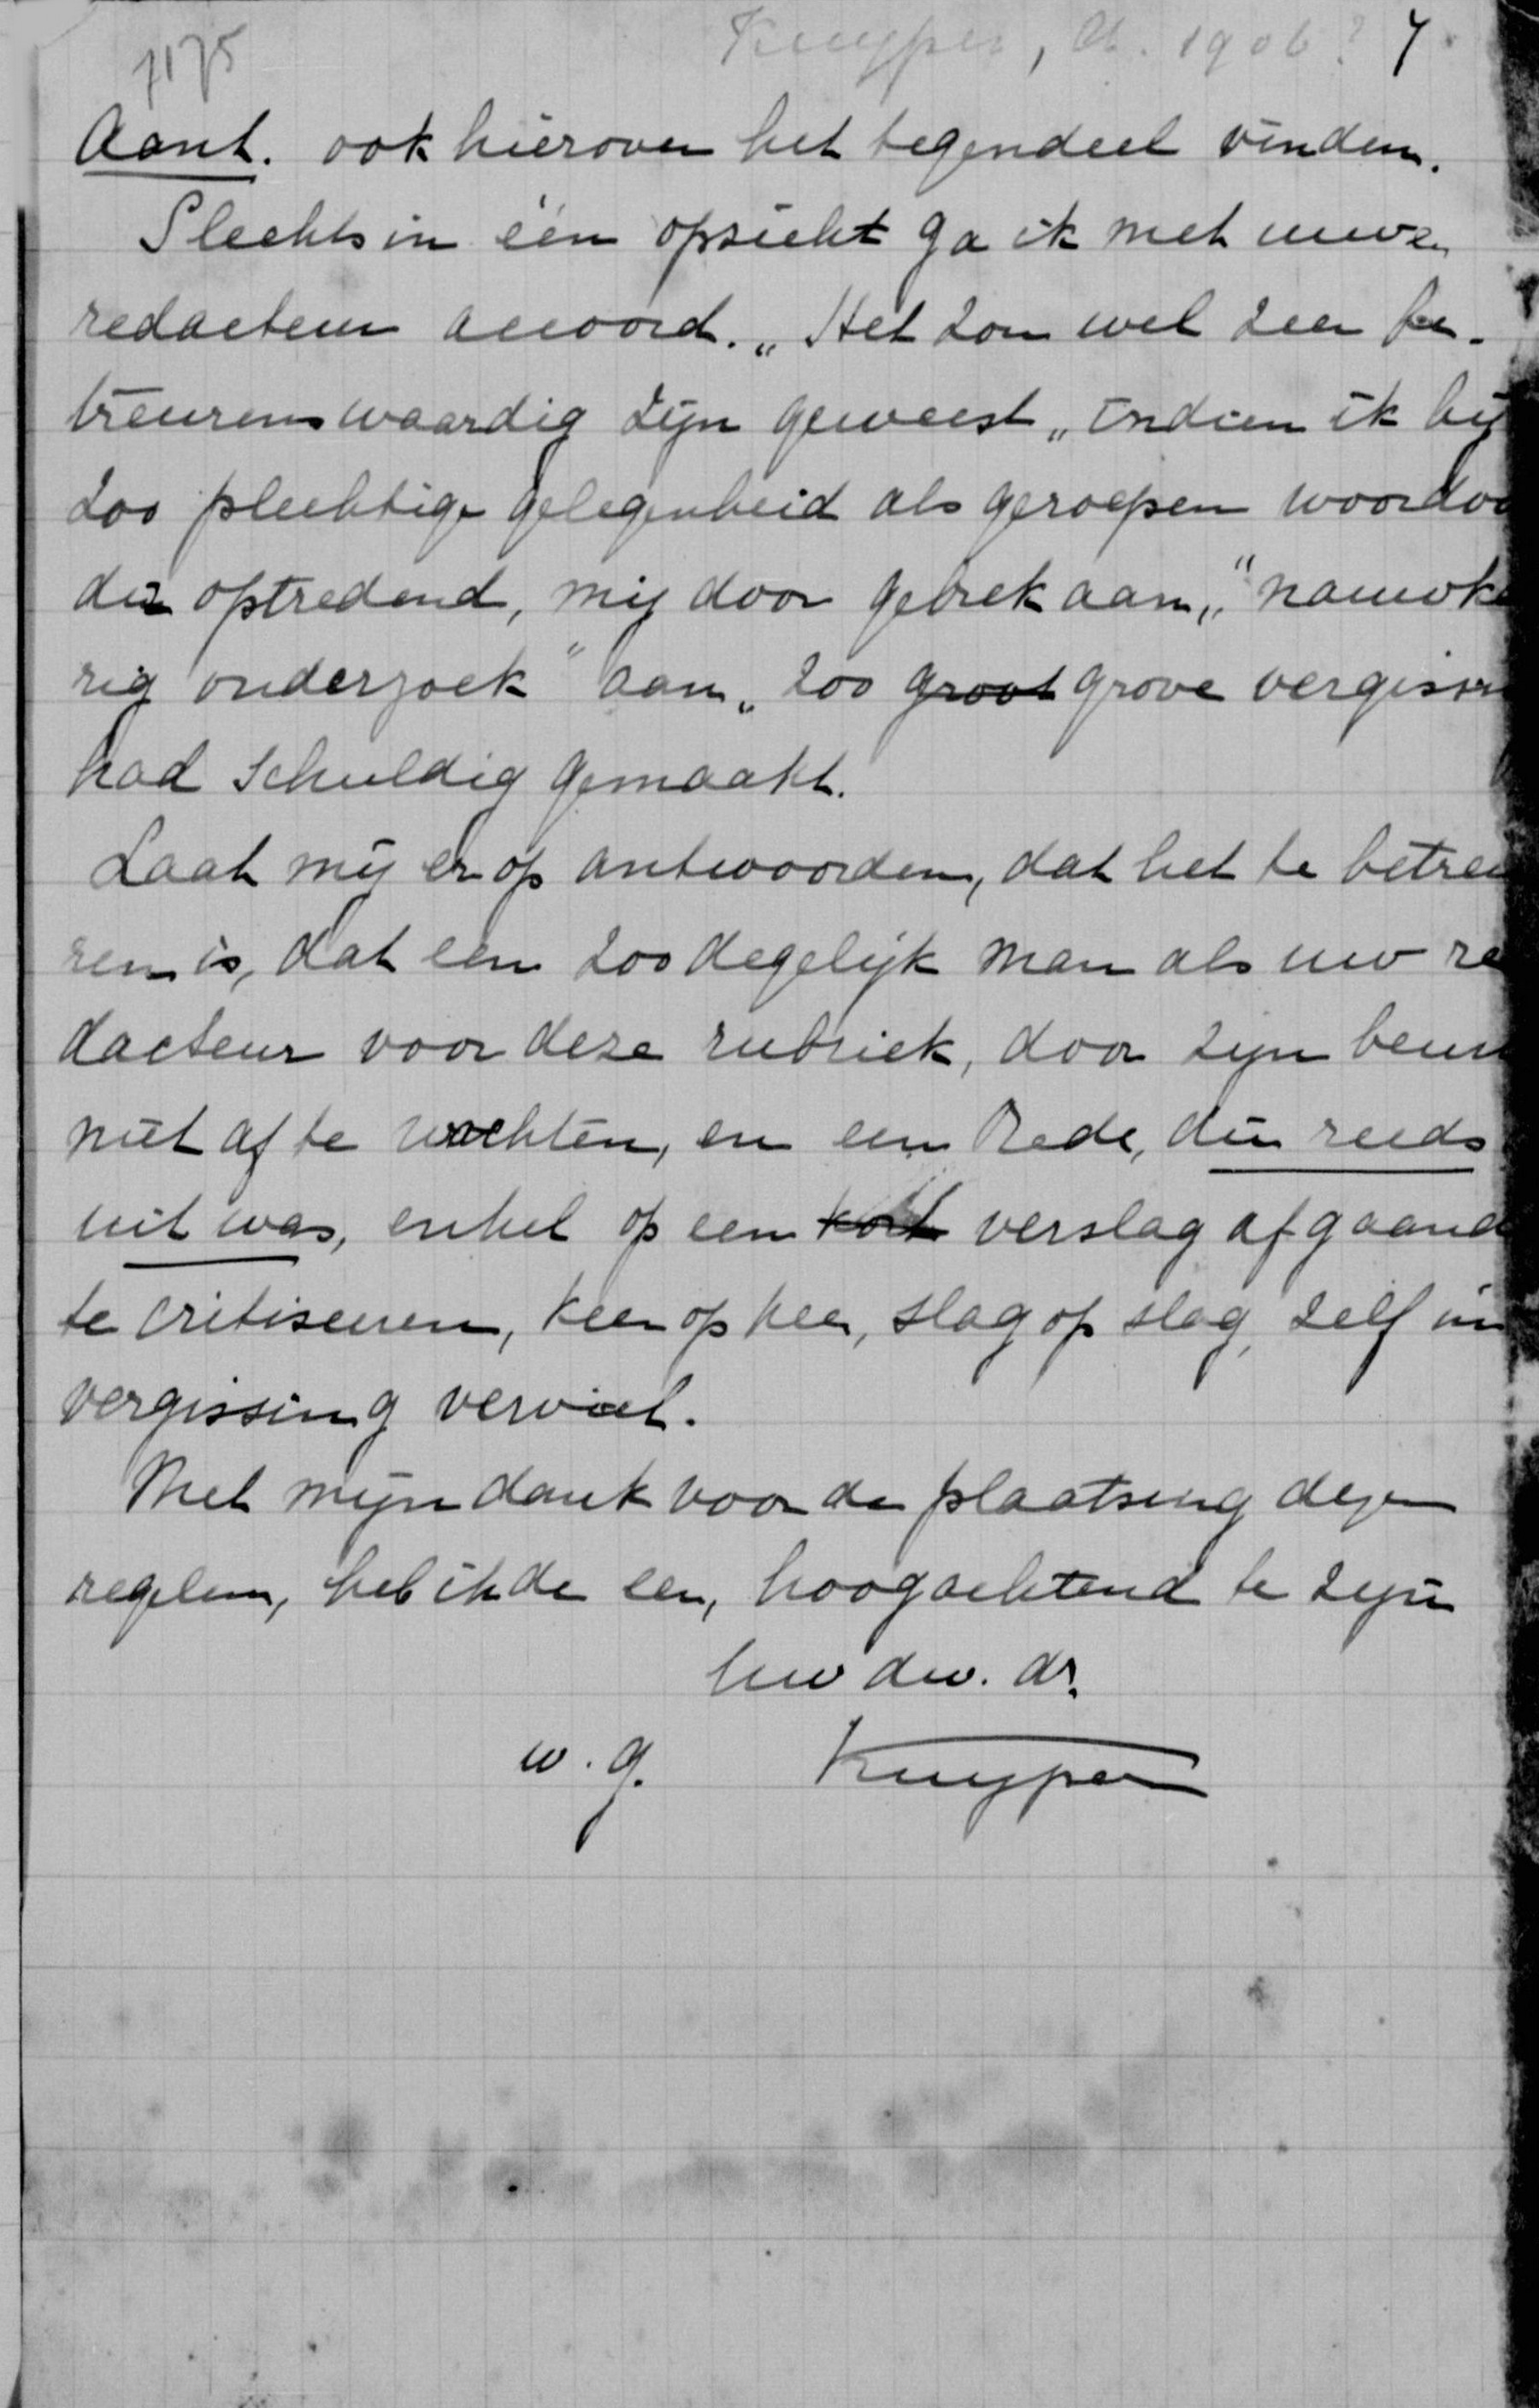 7175
Kuyper, A. 1906? 7
Aant. ook hierover het tegendeel vinden.
Slechts in één opzicht ga ik met uwen
redacteur accoord. „Het zou wel zeer be-
treurenswaardig zijn geweest „indien ik bij
zoo plechtige gelegenheid als geroepen woordvo
der optredend, mij door gebrek aan „nauwke
rig onderzoek" aan „zoo groot grove vergissin
had schuldig gemaakt.
Laat mij er op antwoorden, dat het te betreu
ren is, dat een zoo degelijk man als uw re
dacteur voor deze rubriek, door zijn beurt
niet af te wachten, en een Rede, die reeds
uit was, enkel op een kort verslag afgaand
te critiseeren, keer op keer, slag op slag, zelf in
vergissing verviel.
Met mijn dank voor de plaatsing dezer
regelen, heb ik de eer, hoogachtend te zijn
Uw dw. dr.
w.g. Kuyper